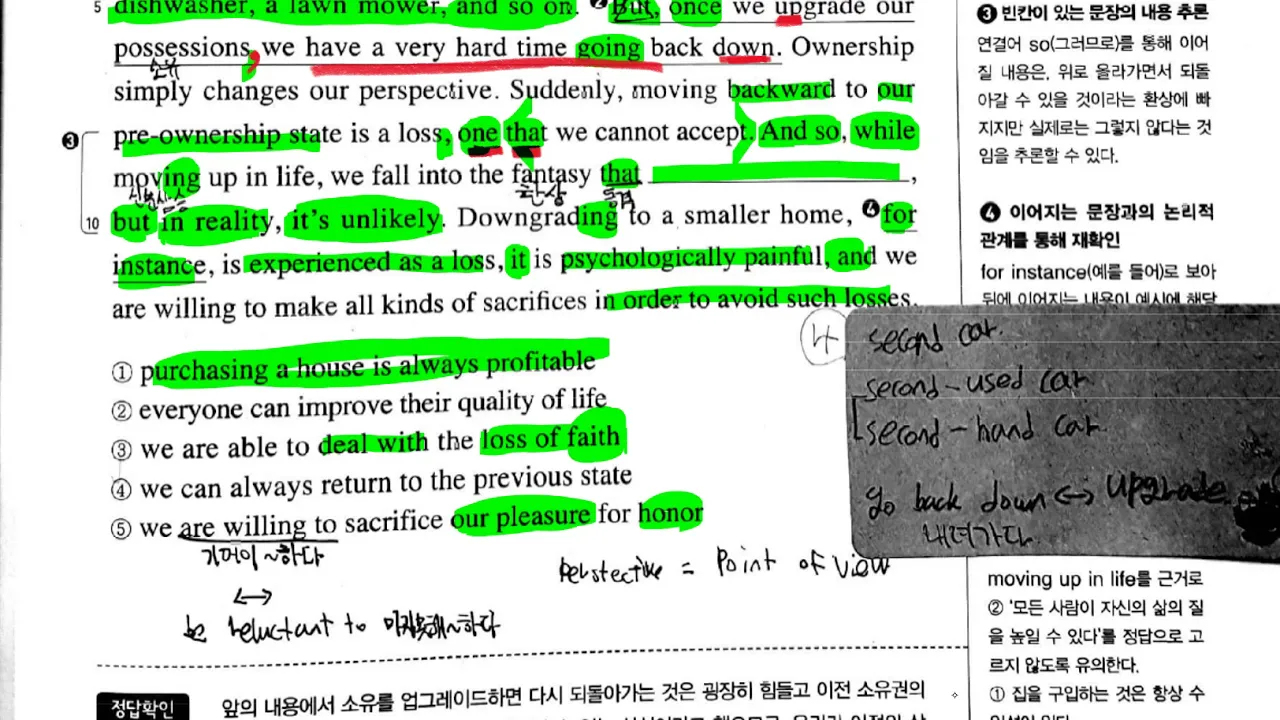 5 dishwasher, a lawn mower, and so on. ❷But, once we upgrade our
possessions, we have a very hard time going back down. Ownership
소유
simply changes our perspective. Suddenly, moving backward to our
❸ pre-ownership state is a loss, one that we cannot accept. And so, while
moving up in life, we fall into the fantasy that ,
환상 동격
10 but in reality, it's unlikely. Downgrading to a smaller home, ❹for
instance, is experienced as a loss, it is psychologically painful, and we
are willing to make all kinds of sacrifices in order to avoid such losses.
① purchasing a house is always profitable
② everyone can improve their quality of life
③ we are able to deal with the loss of faith
④ we can always return to the previous state
⑤ we are willing to sacrifice our pleasure for honor
기꺼이 ~하다
↔
be reluctant to 마지못해~하다
= Point of view
4
second car.
second-used car
second-hand car.
go back down ↔ upgrade.
내려가다.
❸ 빈칸이 있는 문장의 내용 추론
연결어 so(그러므로)를 통해 이어
질 내용은, 위로 올라가면서 되돌
아갈 수 있을 것이라는 환상에 빠
지지만 실제로는 그렇지 않다는 것
임을 추론할 수 있다.
❹ 이어지는 문장과의 논리적
관계를 통해 재확인
for instance(예를 들어)로 보아
뒤에 이어지는 내용이 예시에 해당
moving up in life를 근거로
② '모든 사람이 자신의 삶의 질
을 높일 수 있다'를 정답으로 고
르지 않도록 유의한다.
① 집을 구입하는 것은 항상 수
정답확인
앞의 내용에서 소유를 업그레이드하면 다시 되돌아가는 것은 굉장히 힘들고 이전 소유권의